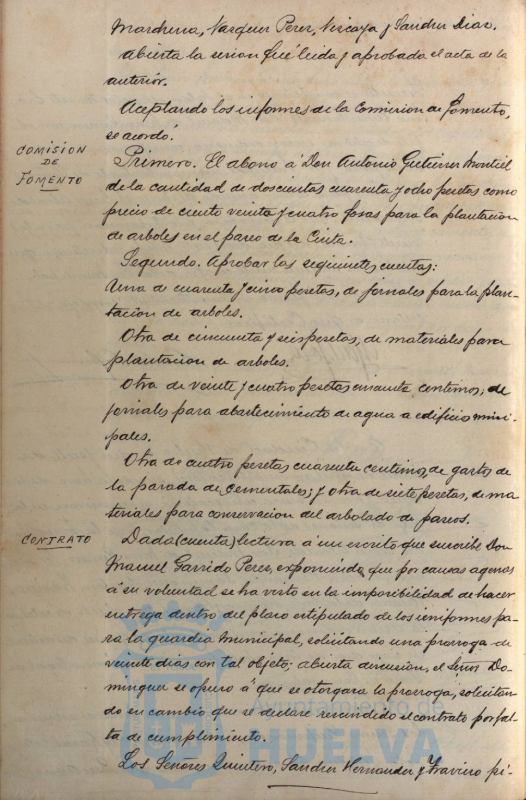 Marchena, Vazquez Perez, Vizcaya y Sandez Diaz.
Abierta la sesion fué leida y aprobada el acta de la
anterior.
Aceptando los informes de la Comision de Fomento,
se acordó.
COMISION
DE
FOMENTO
Primero. El abono á Don Antonio Gutierrez Montiel
de la cantidad de doscientas cuarenta y ocho pesetas como
precio de ciento veinte y cuatro fosas para la plantacion
de arboles en el paseo de la Cinta.
Segundo. Aprobar las seguientes cuentas:
Una de cuarenta y cinco pesetas, de jornales para la plan-
tacion de arboles.
Otra de cincuenta y seis pesetas, de materiales para
plantacion de arboles.
Otra de veinte y cuatro pesetas cincuenta centimos, de
jornales para abastecimiento de agua a edificios munici-
pales.
Otra de cuatro pesetas cuarenta centimos, de gastos de
la parada de cementales; y otra de siete pesetas, de ma-
teriales para conservacion del arbolado de paseos.
CONTRATO
Dada (cuenta) lectura á un escrito que suscribe Don
Manuel Garrido Perez, exponiendo que por causas agenas
á su voluntad se ha visto en la imposibilidad de hacer
entrega dentro del plazo estipulado de los uniformes pa-
ra la guardia Municipal, solicitando una prorroga de
veinte dias con tal objeto; abierta discusion, el Señor Do-
minguez se opuso á que se otorgara la prorroga, solicitan-
do en cambio que se declare rescindido el contrato por fal-
ta de cumplimiento.
Los Señores Quintero, Sandez Hernandez y Traviero pi-
Ayuntamiento de
HUELVA